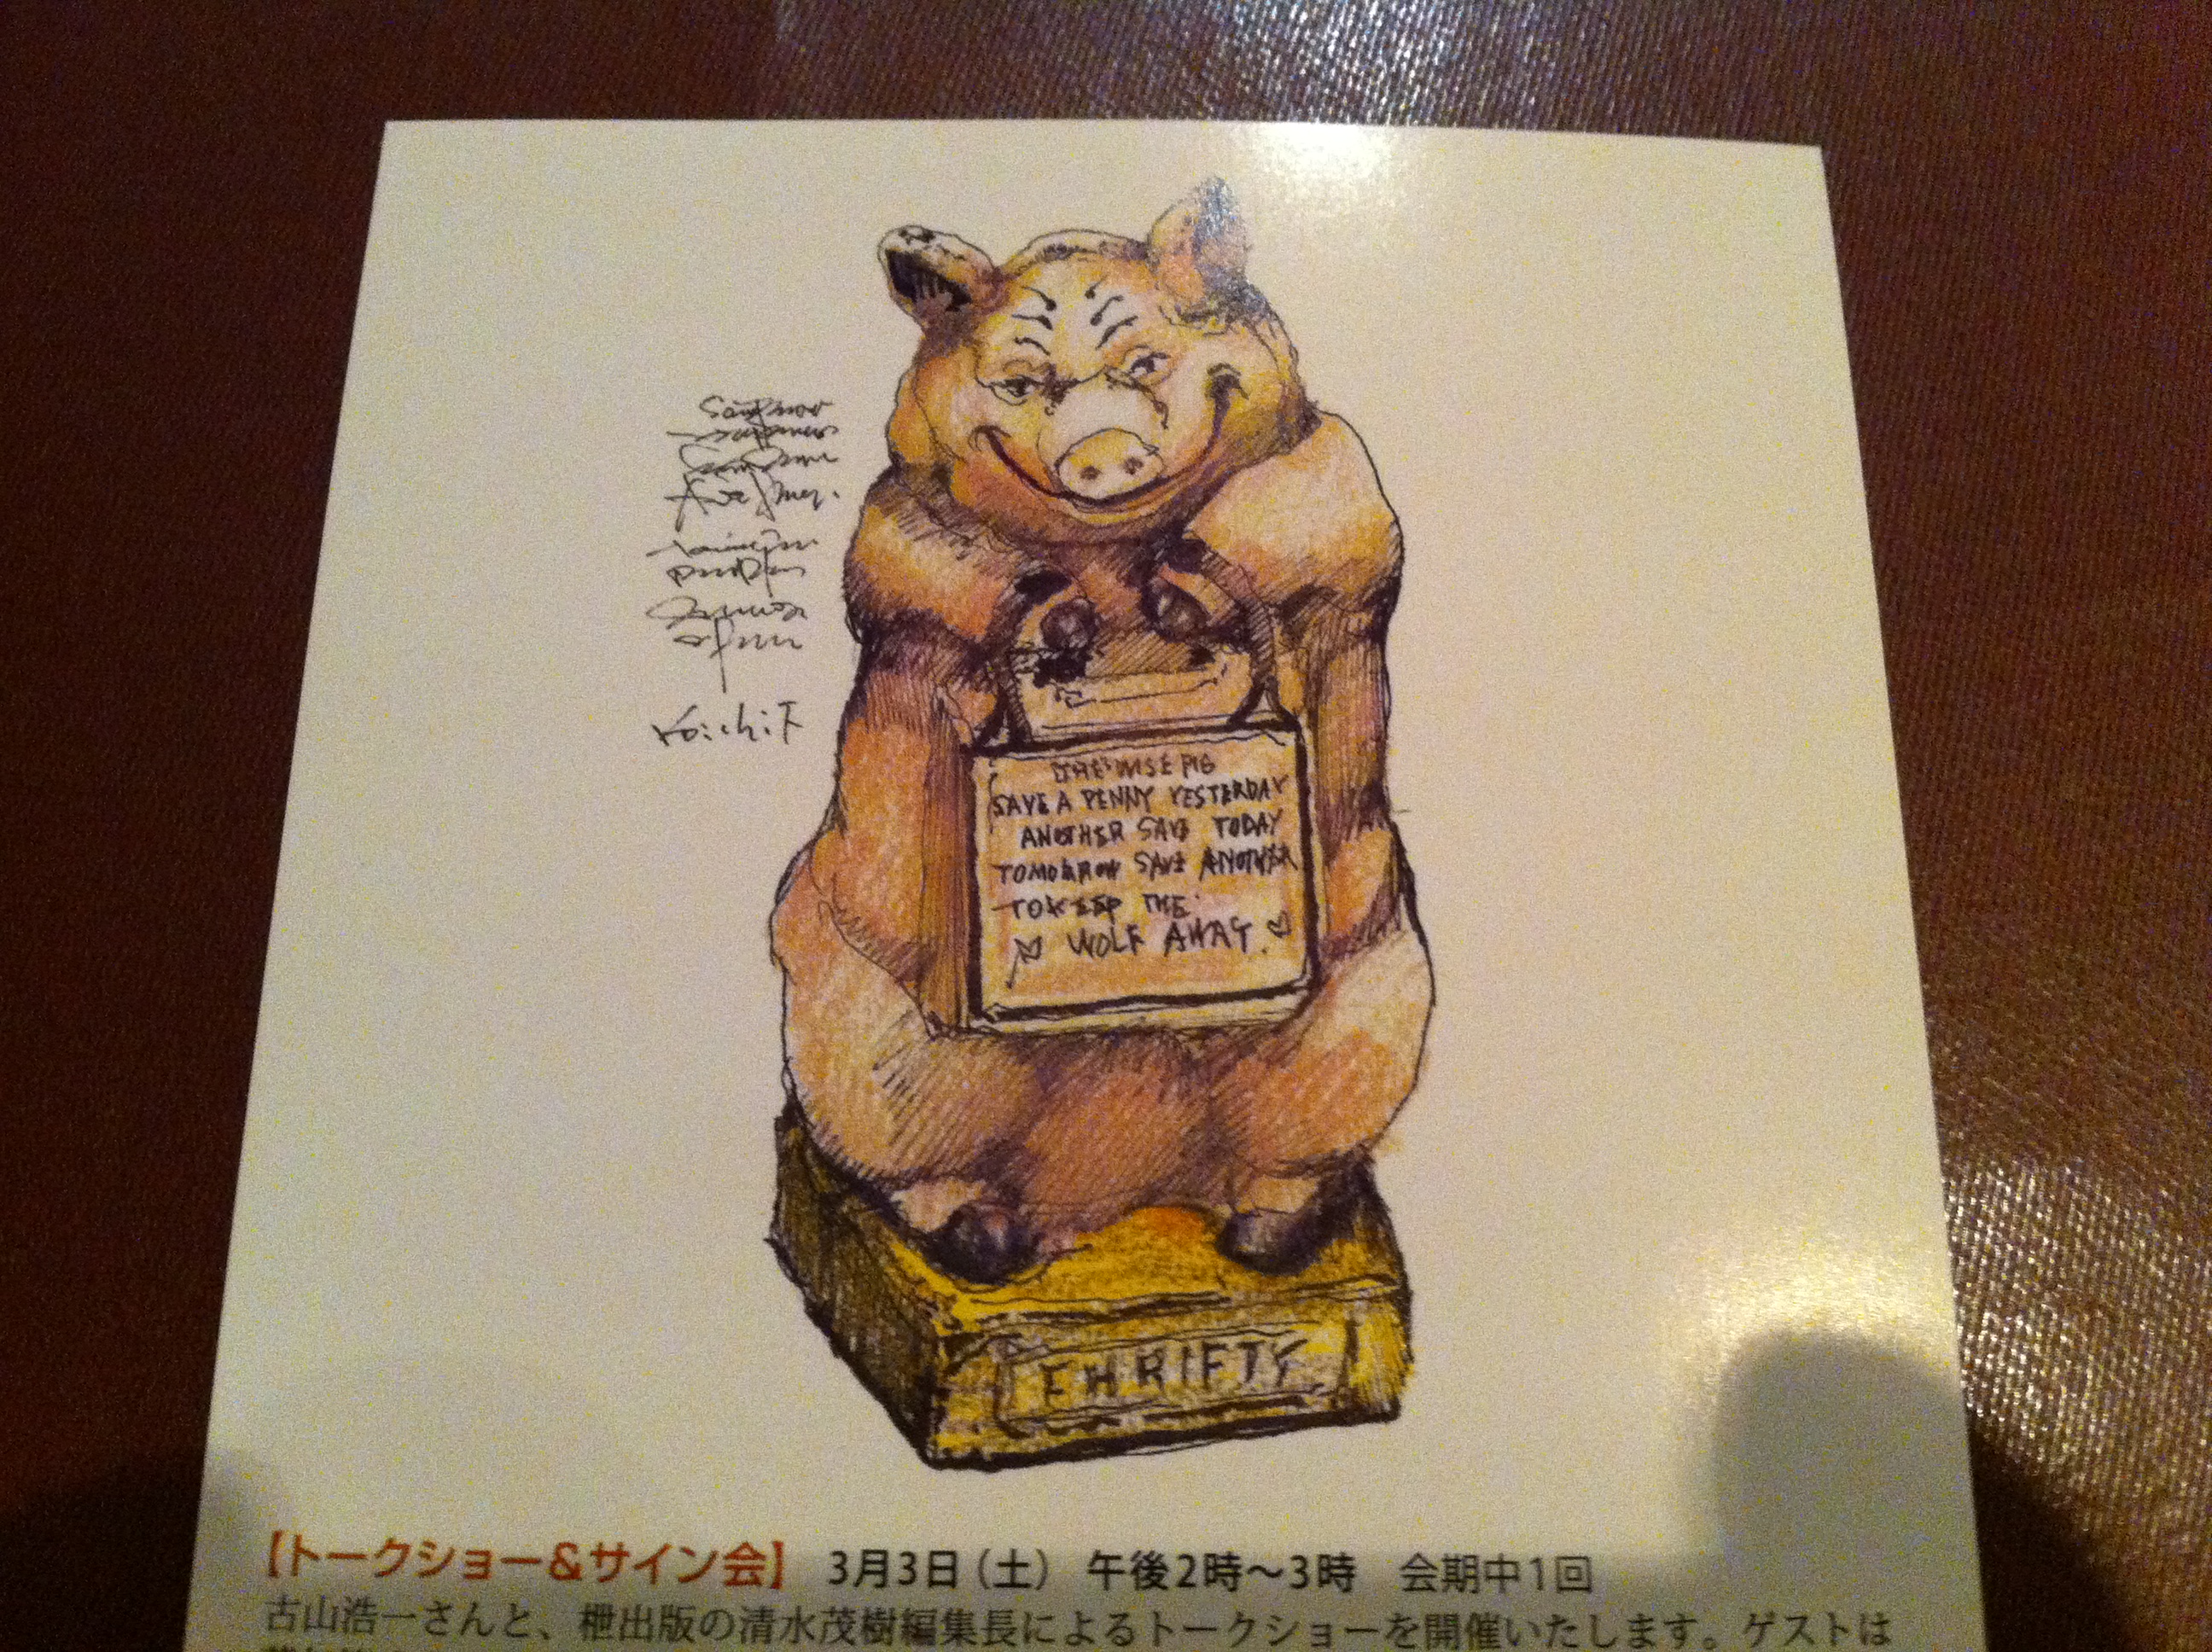 Koichi F
THE WISE PIG
SAVE A PENNY YESTERDAY
ANOTHER SAVE TODAY
TOMORROW SAVE ANOTHER
TO KEEP THE
WOLF AWAY.
EHRIFTY
【トークショー&サイン会】 3月3日(土) 午後2時～3時 会期中1回
古山浩一さんと、枻出版の清水茂樹編集長によるトークショーを開催いたします。ゲストは